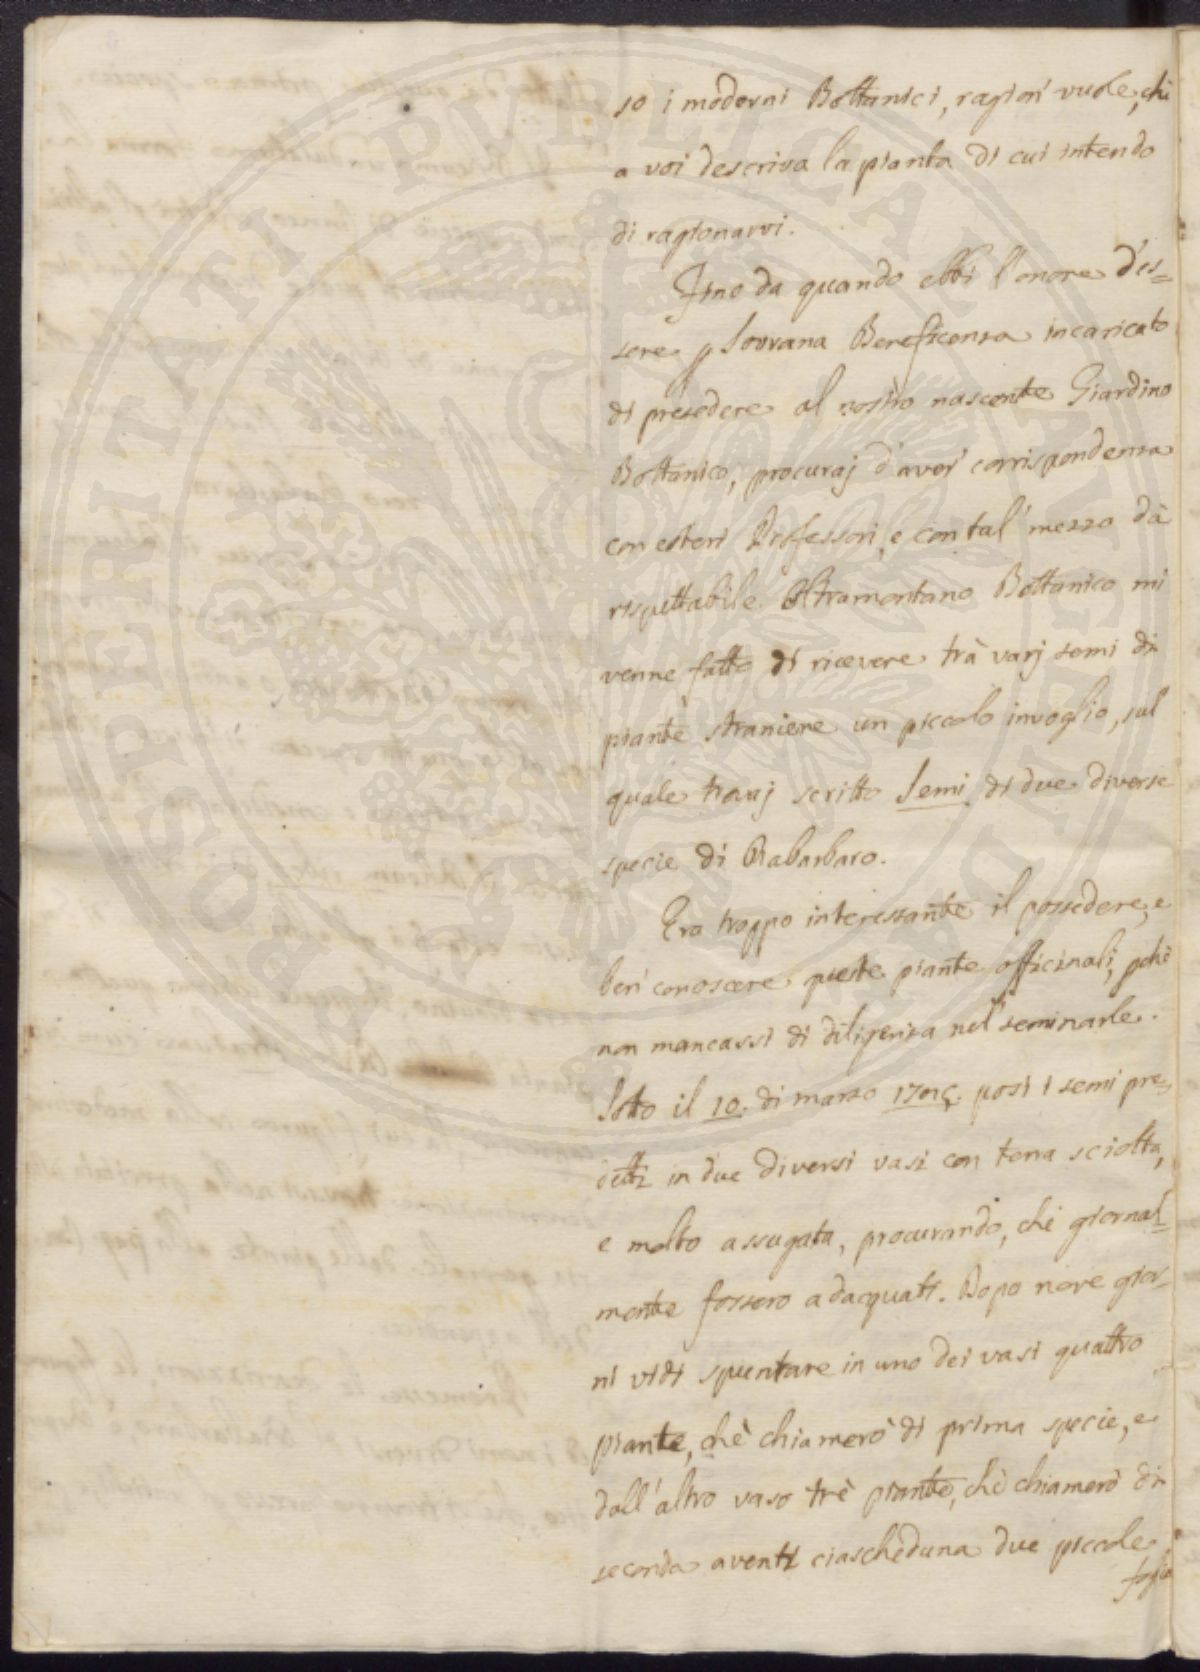 so i moderni Bottanici, ragion' vuole, chè
a voi descriva la pianta di cui intendo
di ragionarvi.
Fino da quando ebbi l'onore d'es=
sere p Sovrana Beneficenza incaricato
di presedere al nostro nascente Giardino
Bottanico, procuraj d'aver' corrispondenza
con esteri Professori, e con tal' mezzo dà
rispettabile Oltramontano Bottanico mi
venne fatto di ricevere trà varj semi di
piante straniere un piccolo invoglio, sul
quale trovaj scritto Semi di due diverse
specie di Rabarbaro.
Era troppo interessante il possedere, e
ben' conoscere queste piante officinali, pchè
non mancassi di diligenza nel' seminarle.
Sotto il 10. di marzo posi i semi pre=
detti in due diversi vasi con terra sciolta,
e molto assugata, procurando, chè giornal=
mente fossero adacquati. Dopo nove gior=
ni vidi spuntare in uno dei vasi quattro
piante, chè chiamerò di prima specie, e
dall'altro vaso trè piante, chè chiamerò di
seconda aventi ciascheduna due piccole
foglie
PROSPERITATI PVBLICAE AVGENDAE